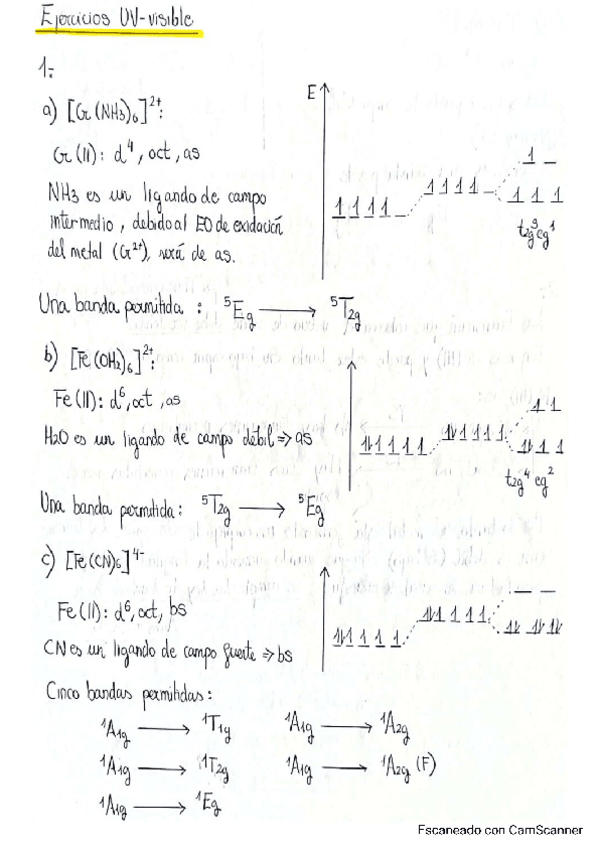 Ejercicios UV-visible
1:
a) [Cr(NH3)6]2+:
E
Cr(II): d4, oct, as
NH3 es un ligando de campo
intermedio, debido al EO de oxidación
del metal (Cr2+), será de as.
1 1 1 1 _
1 1 1 1 _
1 _
1 1 1
t2g3eg1
Una banda permitida : 5Eg → 5T2g
b) [Fe(OH2)6]2+:
Fe(II): d6, oct, as
H2O es un ligando de campo débil => as
1↓ 1 1 1 1
1↓ 1 1 1 1
1 1
1↓ 1 1
t2g4 eg2
Una banda permitida: 5T2g → 5Eg
c) [Fe(CN)6]4-
Fe(II): d6, oct, bs
CN es un ligando de campo fuerte => bs
1↓ 1 1 1 1
1↓ 1 1 1 1
_ _
1↓ 1↓ 1↓
Cinco bandas permitidas:
1A1g → 1T1g 1A1g → 1A2g
1A1g → 1T2g 1A1g → 1A2g (F)
1A1g → 1Eg
Escaneado con CamScanner